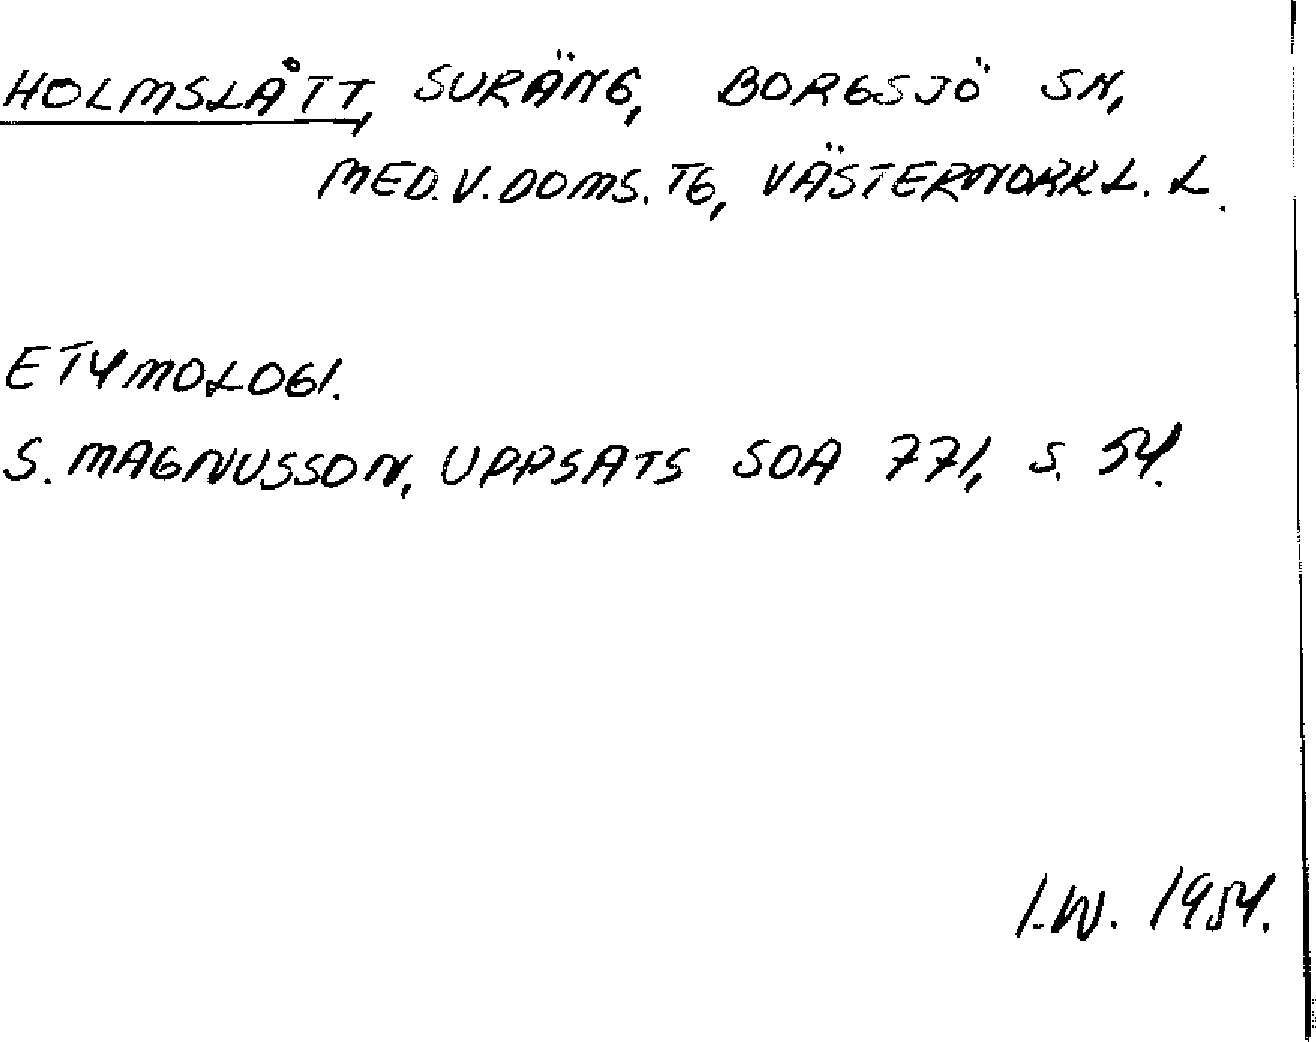 HOLMSLÅTT, SURÄNG, BORGSJÖ SN,
MED.V.DOMS.TG, VÄSTERNORRL. L.
ETYMOLOGI.
S. MAGNUSSON, UPPSATS SOA 771, S. 54.
I.W. 1954.